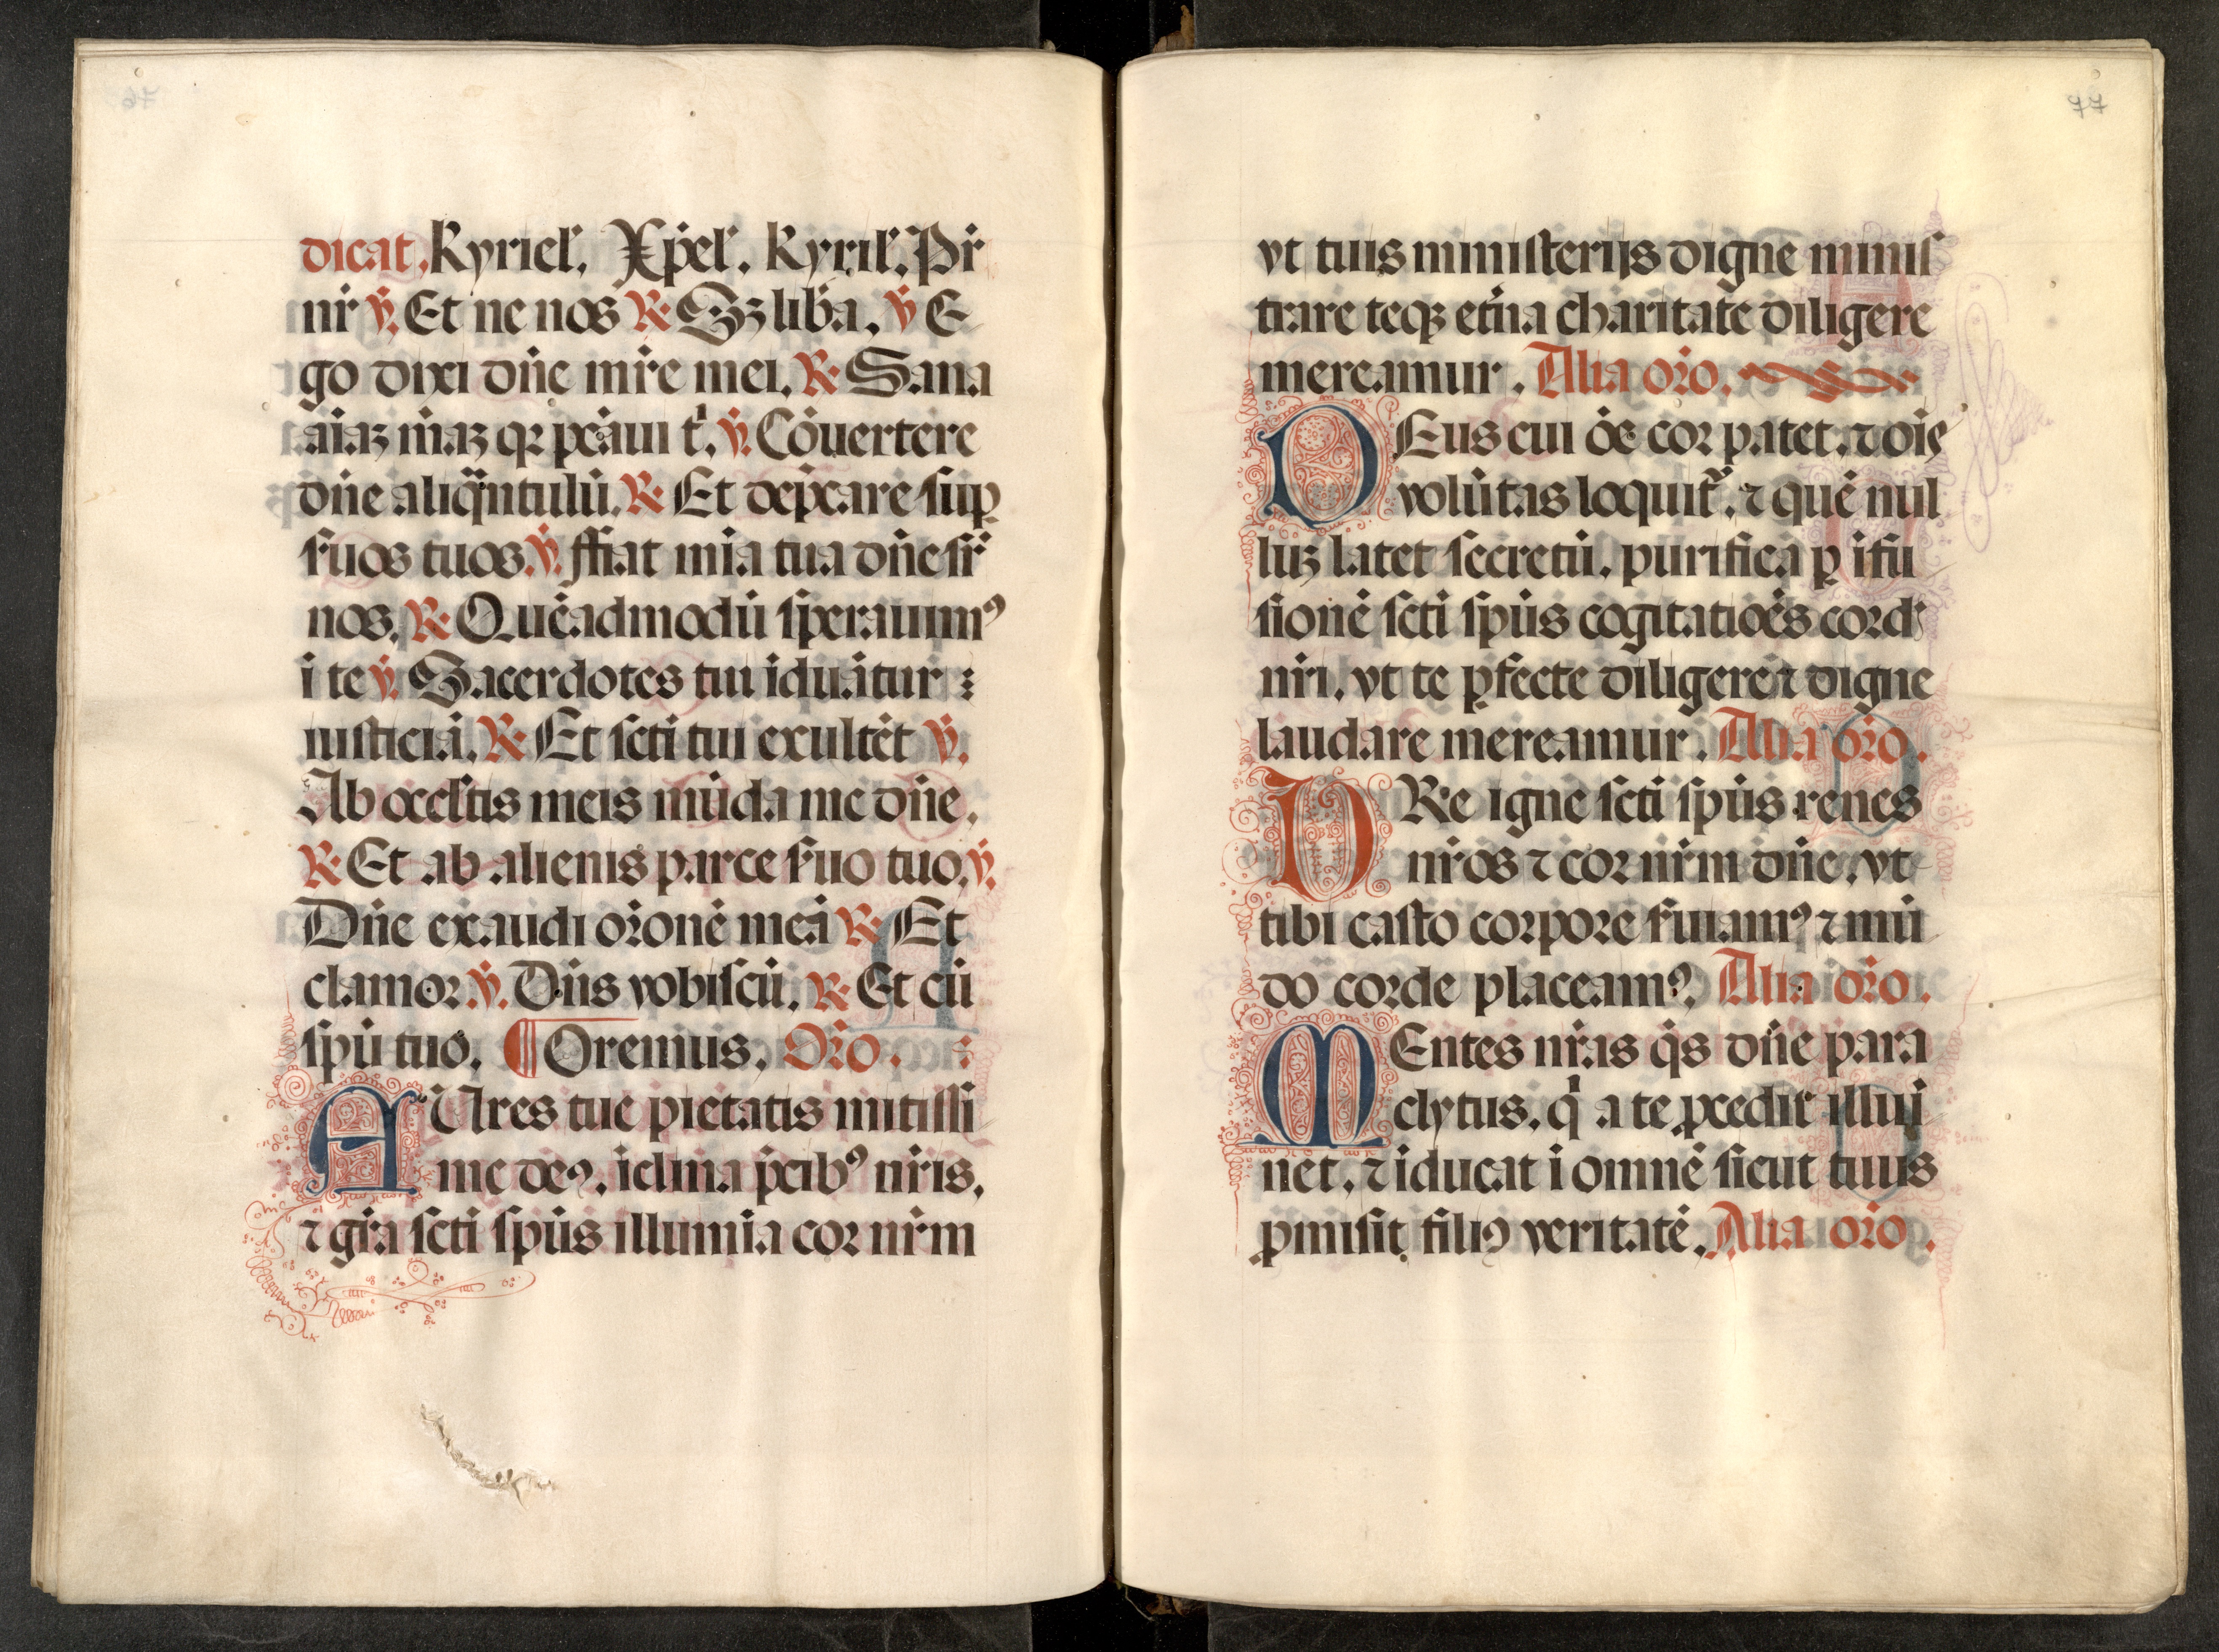 dicat. Kyriel̃. Xp̃el̃. Kyril̃. Pr̃
nr̃ ℣. Et ne nos ℟ Sꝫ lib̃a. ℣ E
go dixi dñe mĩre mei. ℟ Sana
aĩaꝫ m̃aꝫ qꝛ pcãui t'. ℣. Cõuertere
dñe aliqᷓntulũ. ℟ Et depcare sup̱
s̃uos tuos. ℣. ffiat mĩa tua dñe sr̃
nos. ℟ Quẽadmodũ sperauimꝰ
ĩ te ℣. Sacerdotes tui ĩduãtur
iusticiã. ℟ Et sct̃i tui exultẽt ℣.
Ab occultis meis mũda me dñe.
℟ Et ab alienis parce s̃uo tuo. ℣.
Dñe exaudi or̃onẽ meã ℟ Et
clamor ℣. Dñs vobiscũ. ℟ Et cũ
spũ tuo. ¶ Oremus. Or̃o.
AUres tue pietatis mitissi
me deꝰ. ĩclina p̃cibꝰ nr̃is.
⁊ gr̃a sct̃i spũs illumĩa cor nr̃m
77
vt tuis ministerijs digne minis
trare teqꝫ etñа charitate diligere
mereamur. Alia or̃o.
DEus cui õe cor patet. ⁊ oĩs
volũtas loquit᷑. ⁊ quẽ nul
luꝫ latet secretũ. purifica ꝑ ĩfu
sionẽ sct̃i spũs cogitatiões cordꝭ
nr̃i. vt te ꝑfecte diligere ⁊ digne
laudare mereamur. Alia or̃o.
VRe igne sct̃i spũs renes
nr̃os ⁊ cor nr̃m dñe. vt
tibi casto corpore s̃uiamꝰ ⁊ mũ
do corde placeamꝰ. Alia or̃o.
MEntes nr̃as q̃s dñe para
clytus. q' a te ꝓcedit illuĩ
net. ⁊ ĩducat ĩ omnẽ sicut tuus
ꝓmisit filiꝰ veritatẽ. Alia or̃o.